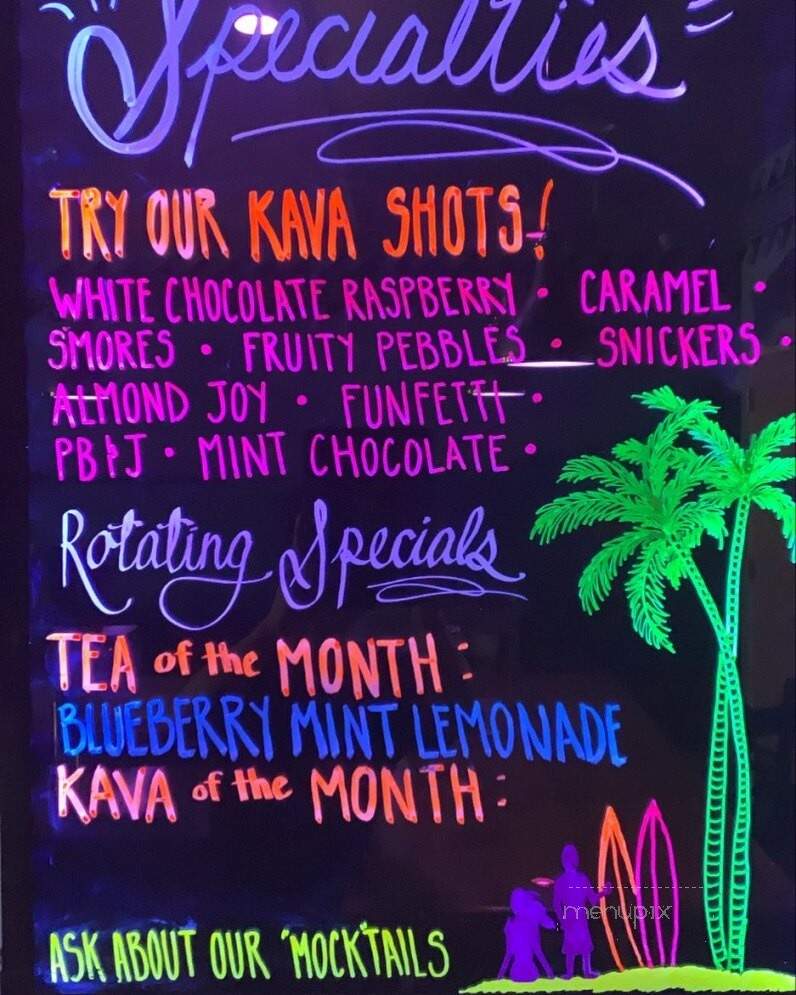 "Specialties"
TRY OUR KAVA SHOTS!
WHITE CHOCOLATE RASPBERRY • CARAMEL •
S'MORES • FRUITY PEBBLES • SNICKERS •
ALMOND JOY • FUNFETTI •
PB&J • MINT CHOCOLATE •
Rotating Specials
TEA of the MONTH:
BLUEBERRY MINT LEMONADE
KAVA of the MONTH:
menupix
ASK ABOUT OUR "MOCK"TAILS